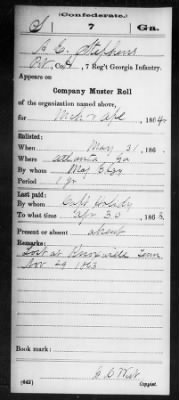 Confederate.
S 7 Ga.
Stephens
Pvt, Co. 7 Reg't Georgia Infantry.
Appears on
Company Muster Roll
of the organization named above,
for Mch & Apl, 1864
Enlisted:
When May 31, 186
Where Atlanta Ga
By whom Maj
Period 1 yr
Last paid:
By whom Capt
To what time Apr 30, 1863.
Present or absent absent
Remarks:
Lost at Knoxville Tenn
Nov 29 1863
Book mark:
(642) Copyist.